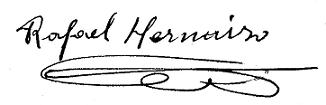 Rafael Hernaiso